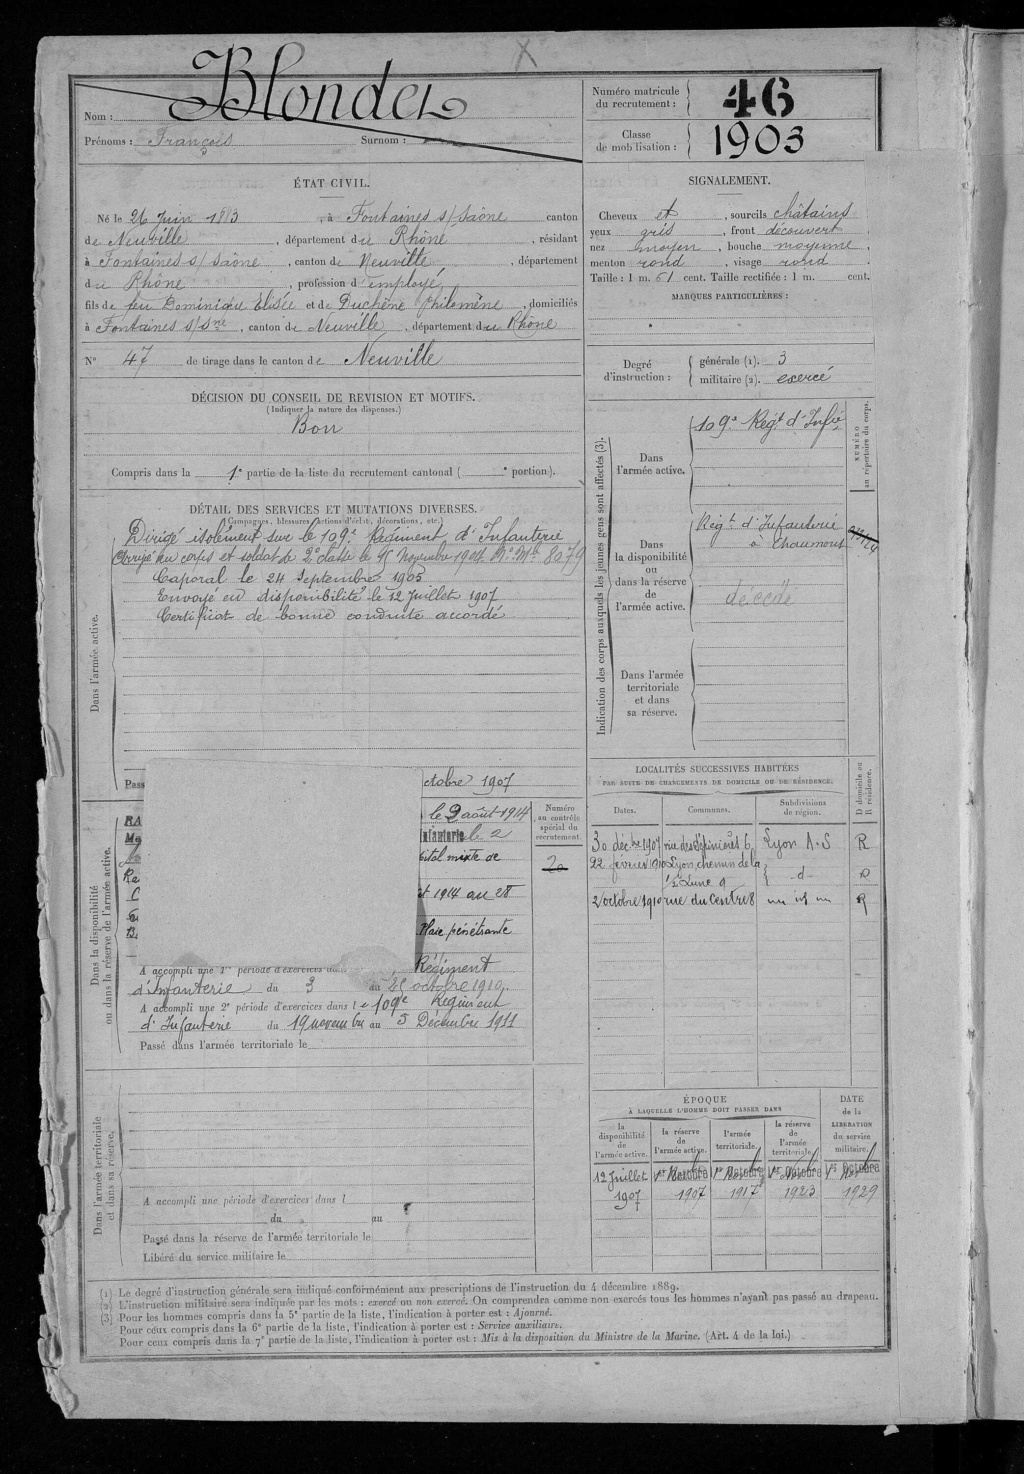 Nom : Blondel
Prénoms : François Surnom :
Numéro matricule du recrutement : 46
Classe de mobilisation : 1903
ÉTAT CIVIL.
Né le 26 Juin 1883, à Fontaines s/ Saône canton
de Neuville, département du Rhône, résidant
à Fontaines s/ Saône, canton de Neuville, département
du Rhône, profession d'employé
fils de feu Dominique Elisée et de Duchêne Philomène, domiciliés
à Fontaines s/ Sne, canton de Neuville, département du Rhône
N° 47 de tirage dans le canton de Neuville
SIGNALEMENT.
Cheveux et, sourcils châtains
yeux gris, front découvert
nez moyen, bouche moyenne
menton rond, visage rond
Taille : 1 m. 61 cent. Taille rectifiée : 1 m. cent.
MARQUES PARTICULIÈRES :
Degré d'instruction : générale (1). 3
militaire (2). exercé
DÉCISION DU CONSEIL DE REVISION ET MOTIFS.
(Indiquer la nature des dispenses.)
Bon
Compris dans la 1e partie de la liste du recrutement cantonal ( e portion).
DÉTAIL DES SERVICES ET MUTATIONS DIVERSES.
(Campagnes, blessures, actions d'éclat, décorations, etc.)
Dans l'armée active.
Dirigé isolément sur le 109e Régiment d'Infanterie
Arrivé au corps et soldat de 2e classe le 15 Novembre 1904. N° Mle 8079
Caporal le 24 Septembre 1905
Envoyé en disponibilité le 12 Juillet 1907
Certificat de bonne conduite accordé
Pass
ctobre 1907
Dans la disponibilité ou dans la réserve de l'armée active.
RA
le 2 août 1914
Ma
nfanterie le 2
ital mixte de
Ra
t 1914 au 28
B
Plaie pénétrante
A accompli une 1re période d'exercices dans Régiment
d'Infanterie du 3 au 25 octobre 1910.
A accompli une 2e période d'exercices dans le 109e Régiment
d'Infanterie du 19 novembre au 5 Décembre 1911
Passé dans l'armée territoriale le
Numéro au contrôle spécial du recrutement.
20
Dans l'armée territoriale et dans sa réserve.
A accompli une période d'exercices dans l
du au
Passé dans la réserve de l'armée territoriale le
Libéré du service militaire le
Indication des corps auxquels les jeunes gens sont affectés (3).
NUMÉRO au répertoire du corps.
Dans l'armée active.
109e Régt d'Infie
Dans la disponibilité ou dans la réserve de l'armée active.
Régt d'Infanterie
à Chaumont
décédé
Dans l'armée territoriale et dans sa réserve.
LOCALITÉS SUCCESSIVES HABITÉES
PAR SUITE DE CHANGEMENTS DE DOMICILE OU DE RÉSIDENCE.
D domicile ou R résidence.
Dates. Communes. Subdivisions de région.
30 décbre 1907 rue des Pépinières 6 Lyon A-S R
22 février 1910 Lyon, chemin de la
1/2 Lune 9 -d- D
2 octobre 1910 rue du Centre 8 R
ÉPOQUE
À LAQUELLE L'HOMME DOIT PASSER DANS
DATE de la LIBÉRATION du service militaire.
la disponibilité de l'armée active. la réserve de l'armée active. l'armée territoriale. la réserve de l'armée territoriale.
12 Juillet 1er Octobre 1er Octobre 1er Octobre 1er Octobre
1907 1907 1917 1923 1929
(1) Le degré d'instruction générale sera indiqué conformément aux prescriptions de l'instruction du 4 décembre 1889.
(2) L'instruction militaire sera indiquée par les mots : exercé ou non exercé. On comprendra comme non exercés tous les hommes n'ayant pas passé au drapeau.
(3) Pour les hommes compris dans la 5e partie de la liste, l'indication à porter est : Ajourné.
Pour ceux compris dans la 6e partie de la liste, l'indication à porter est : Service auxiliaire.
Pour ceux compris dans la 7e partie de la liste, l'indication à porter est : Mis à la disposition du Ministre de la Marine. (Art. 4 de la loi.)